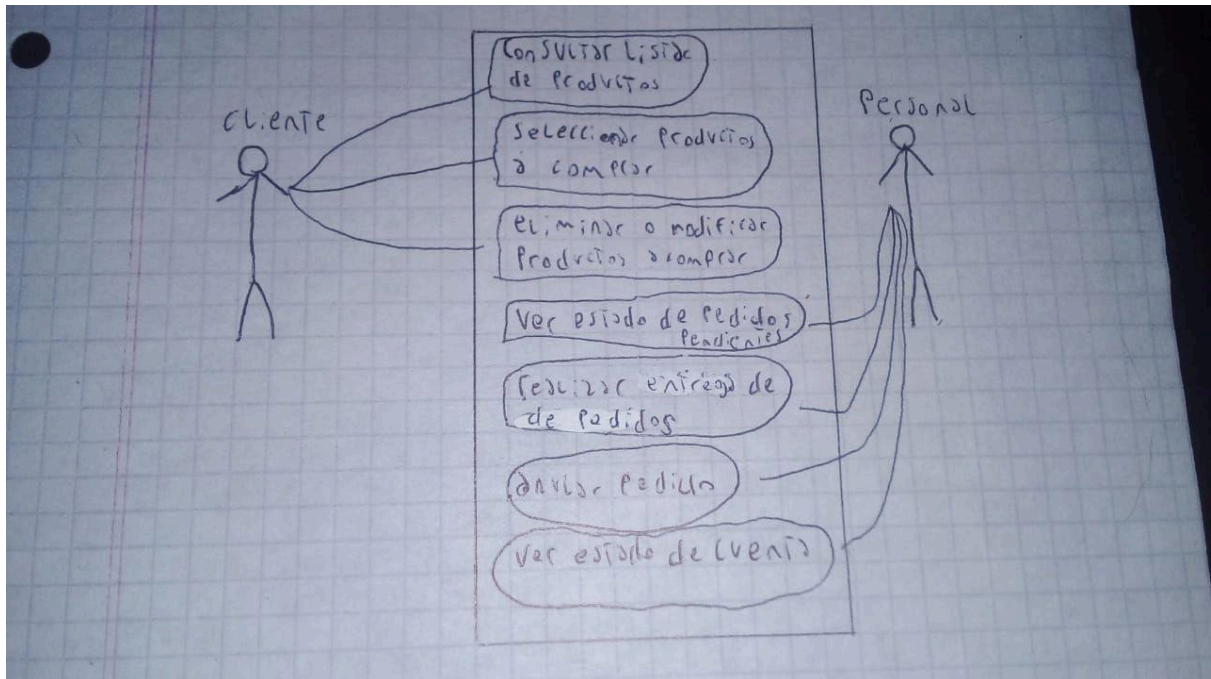 cliente
Personal
consultar lista
de Productos
seleccionar Productos
a comprar
eliminar o modificar
Productos a comprar
Ver estado de Pedidos
Pendientes
realizar entrega de
de Pedidos
anular Pedido
Ver estado de cuenta